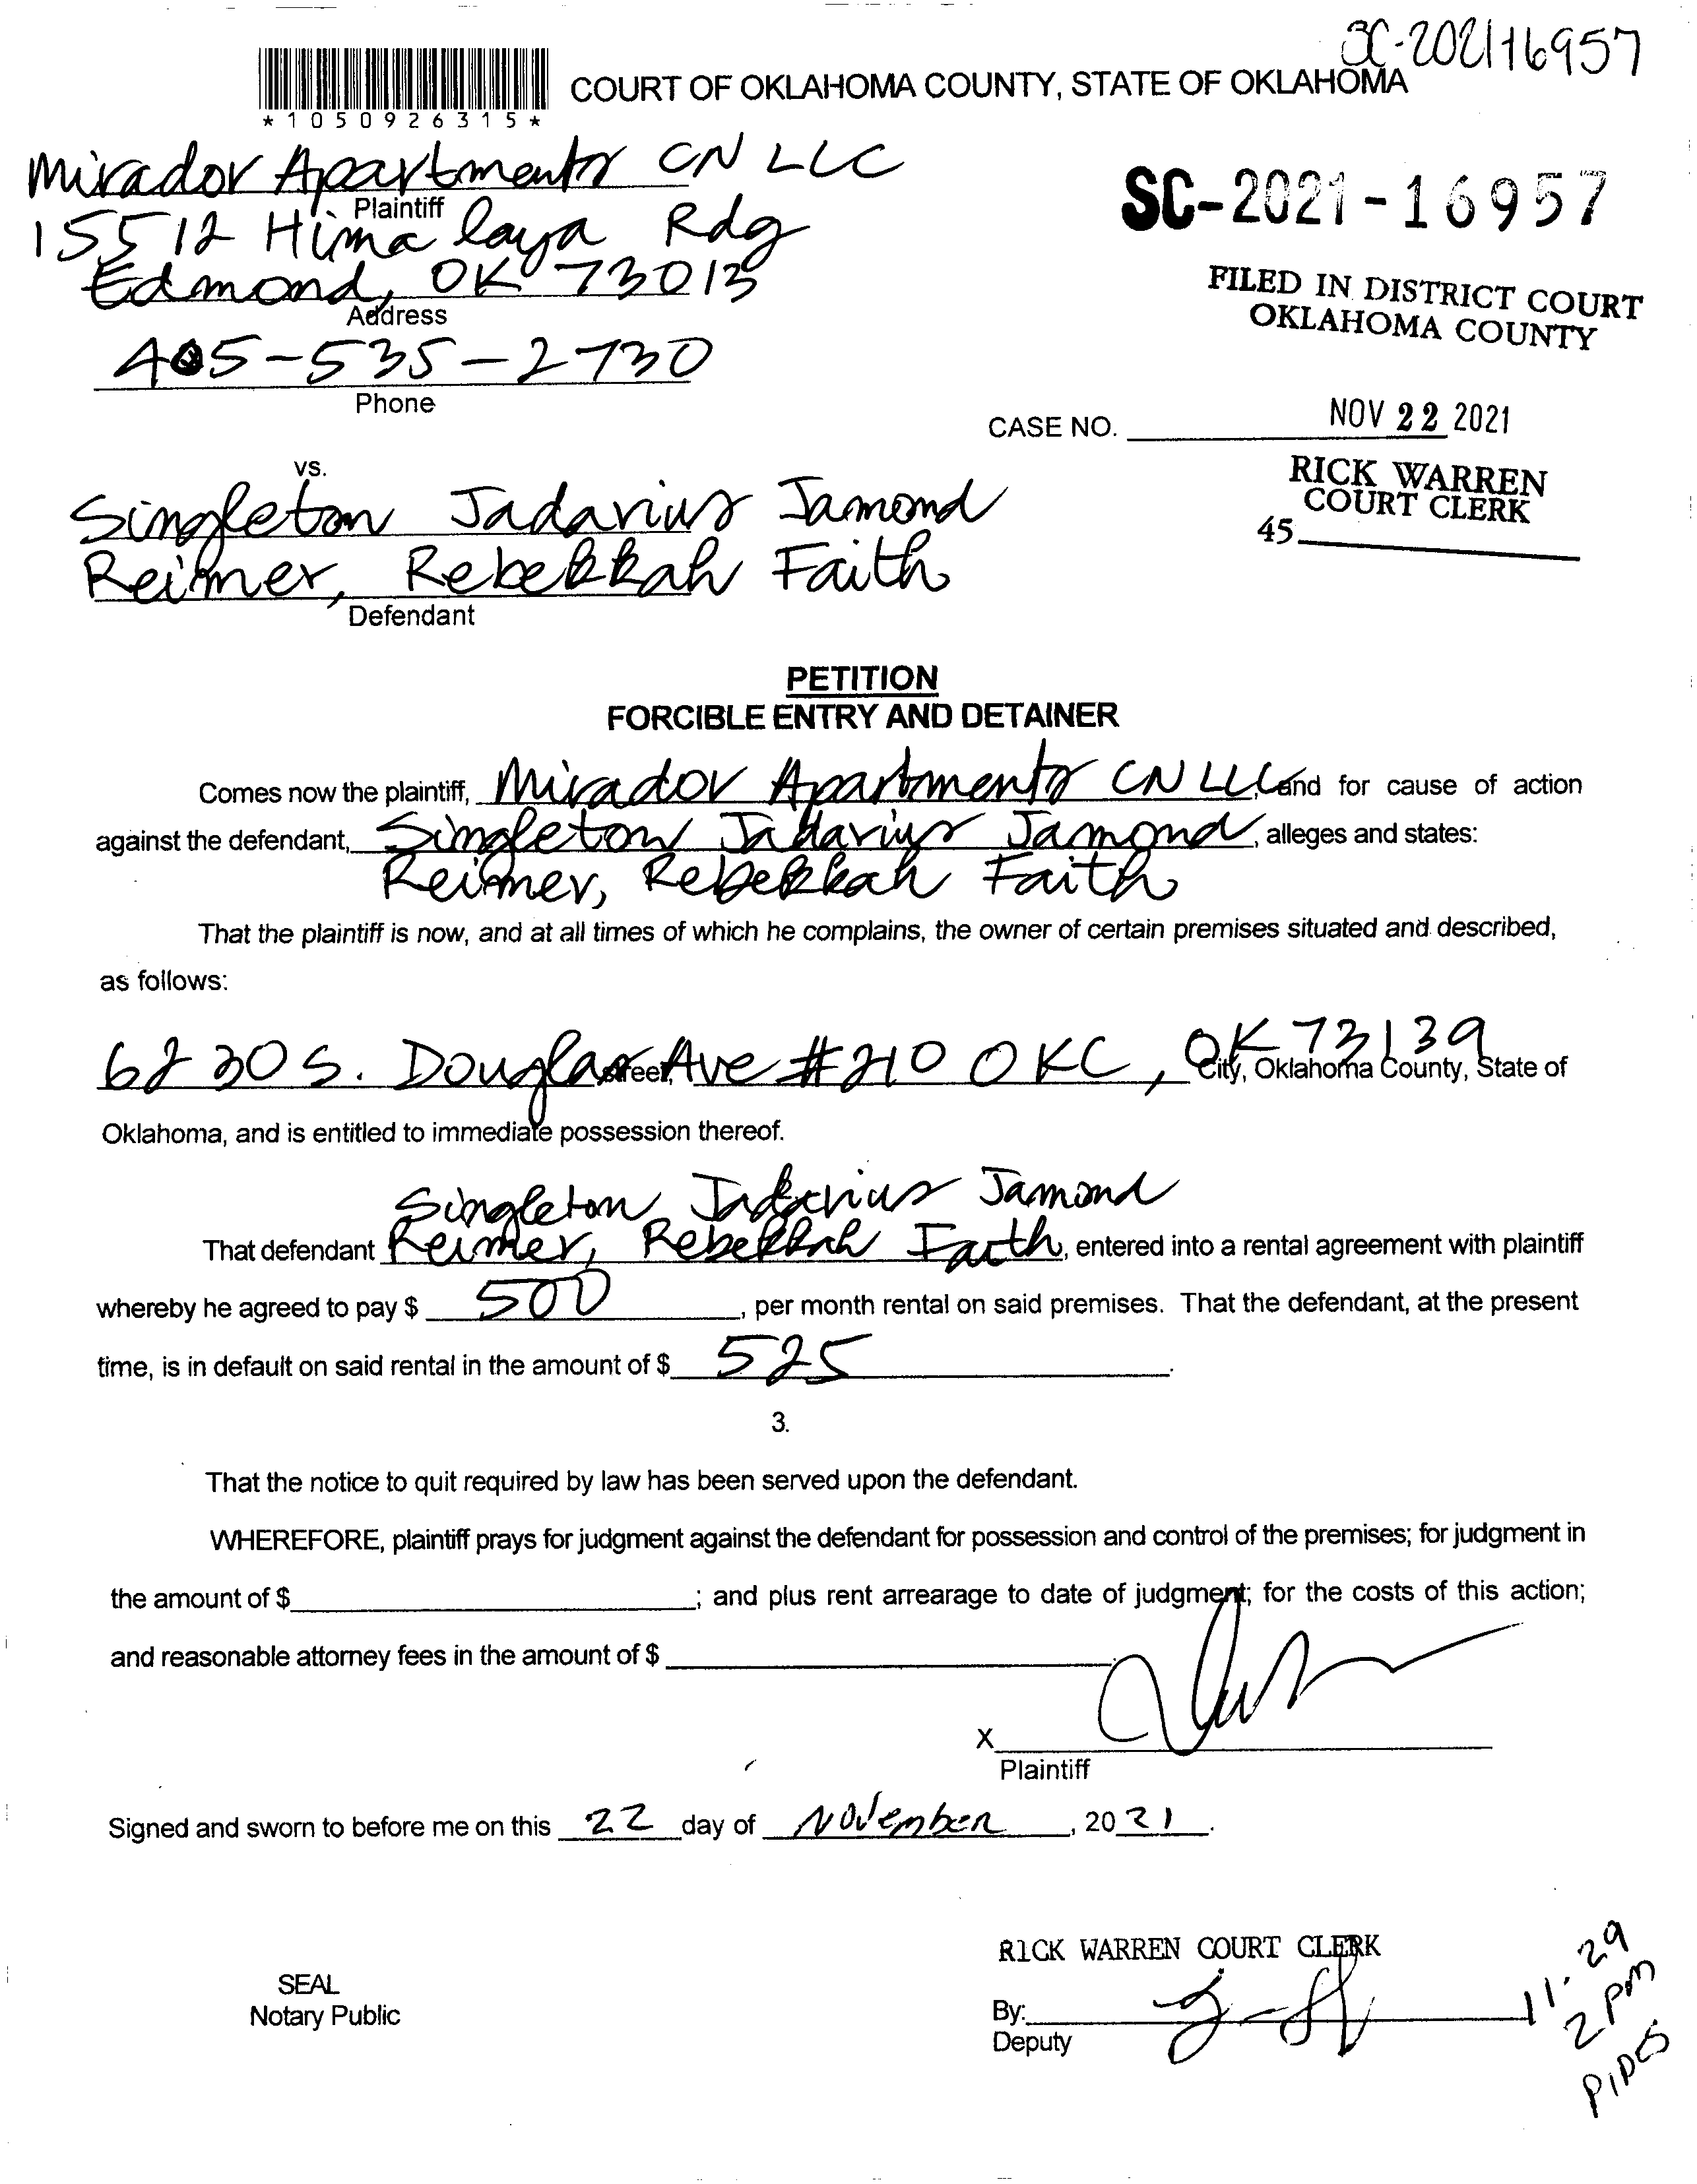 SC-202116957
*1050926315*
COURT OF OKLAHOMA COUNTY, STATE OF OKLAHOMA
Mirador Apartments CN LLC
Plaintiff
SC-2021-16957
15512 Himalaya Rdg
Edmond, OK 73013
Address
FILED IN DISTRICT COURT
OKLAHOMA COUNTY
405-535-2730
Phone
CASE NO.
NOV 22 2021
vs.
RICK WARREN
COURT CLERK
45
Singleton Jadarius Jamond
Reimer, Rebekkah Faith
Defendant
PETITION
FORCIBLE ENTRY AND DETAINER
Comes now the plaintiff, Mirador Apartments CN LLC, and for cause of action
against the defendant, Singleton Jadarius Jamond, alleges and states:
Reimer, Rebekkah Faith
That the plaintiff is now, and at all times of which he complains, the owner of certain premises situated and described,
as follows:
6230 S. Douglas Ave #210 OKC, OK 73139
Street, City, Oklahoma County, State of
Oklahoma, and is entitled to immediate possession thereof.
Singleton Jadarius Jamond
That defendant Reimer, Rebekkah Faith, entered into a rental agreement with plaintiff
whereby he agreed to pay $ 500, per month rental on said premises. That the defendant, at the present
time, is in default on said rental in the amount of $ 525.
3.
That the notice to quit required by law has been served upon the defendant.
WHEREFORE, plaintiff prays for judgment against the defendant for possession and control of the premises; for judgment in
the amount of $ ; and plus rent arrearage to date of judgment; for the costs of this action;
and reasonable attorney fees in the amount of $
X
Plaintiff
Signed and sworn to before me on this 22 day of November, 2021.
RICK WARREN COURT CLERK
SEAL
Notary Public
By:
Deputy
11.29
2 pm
PIPES